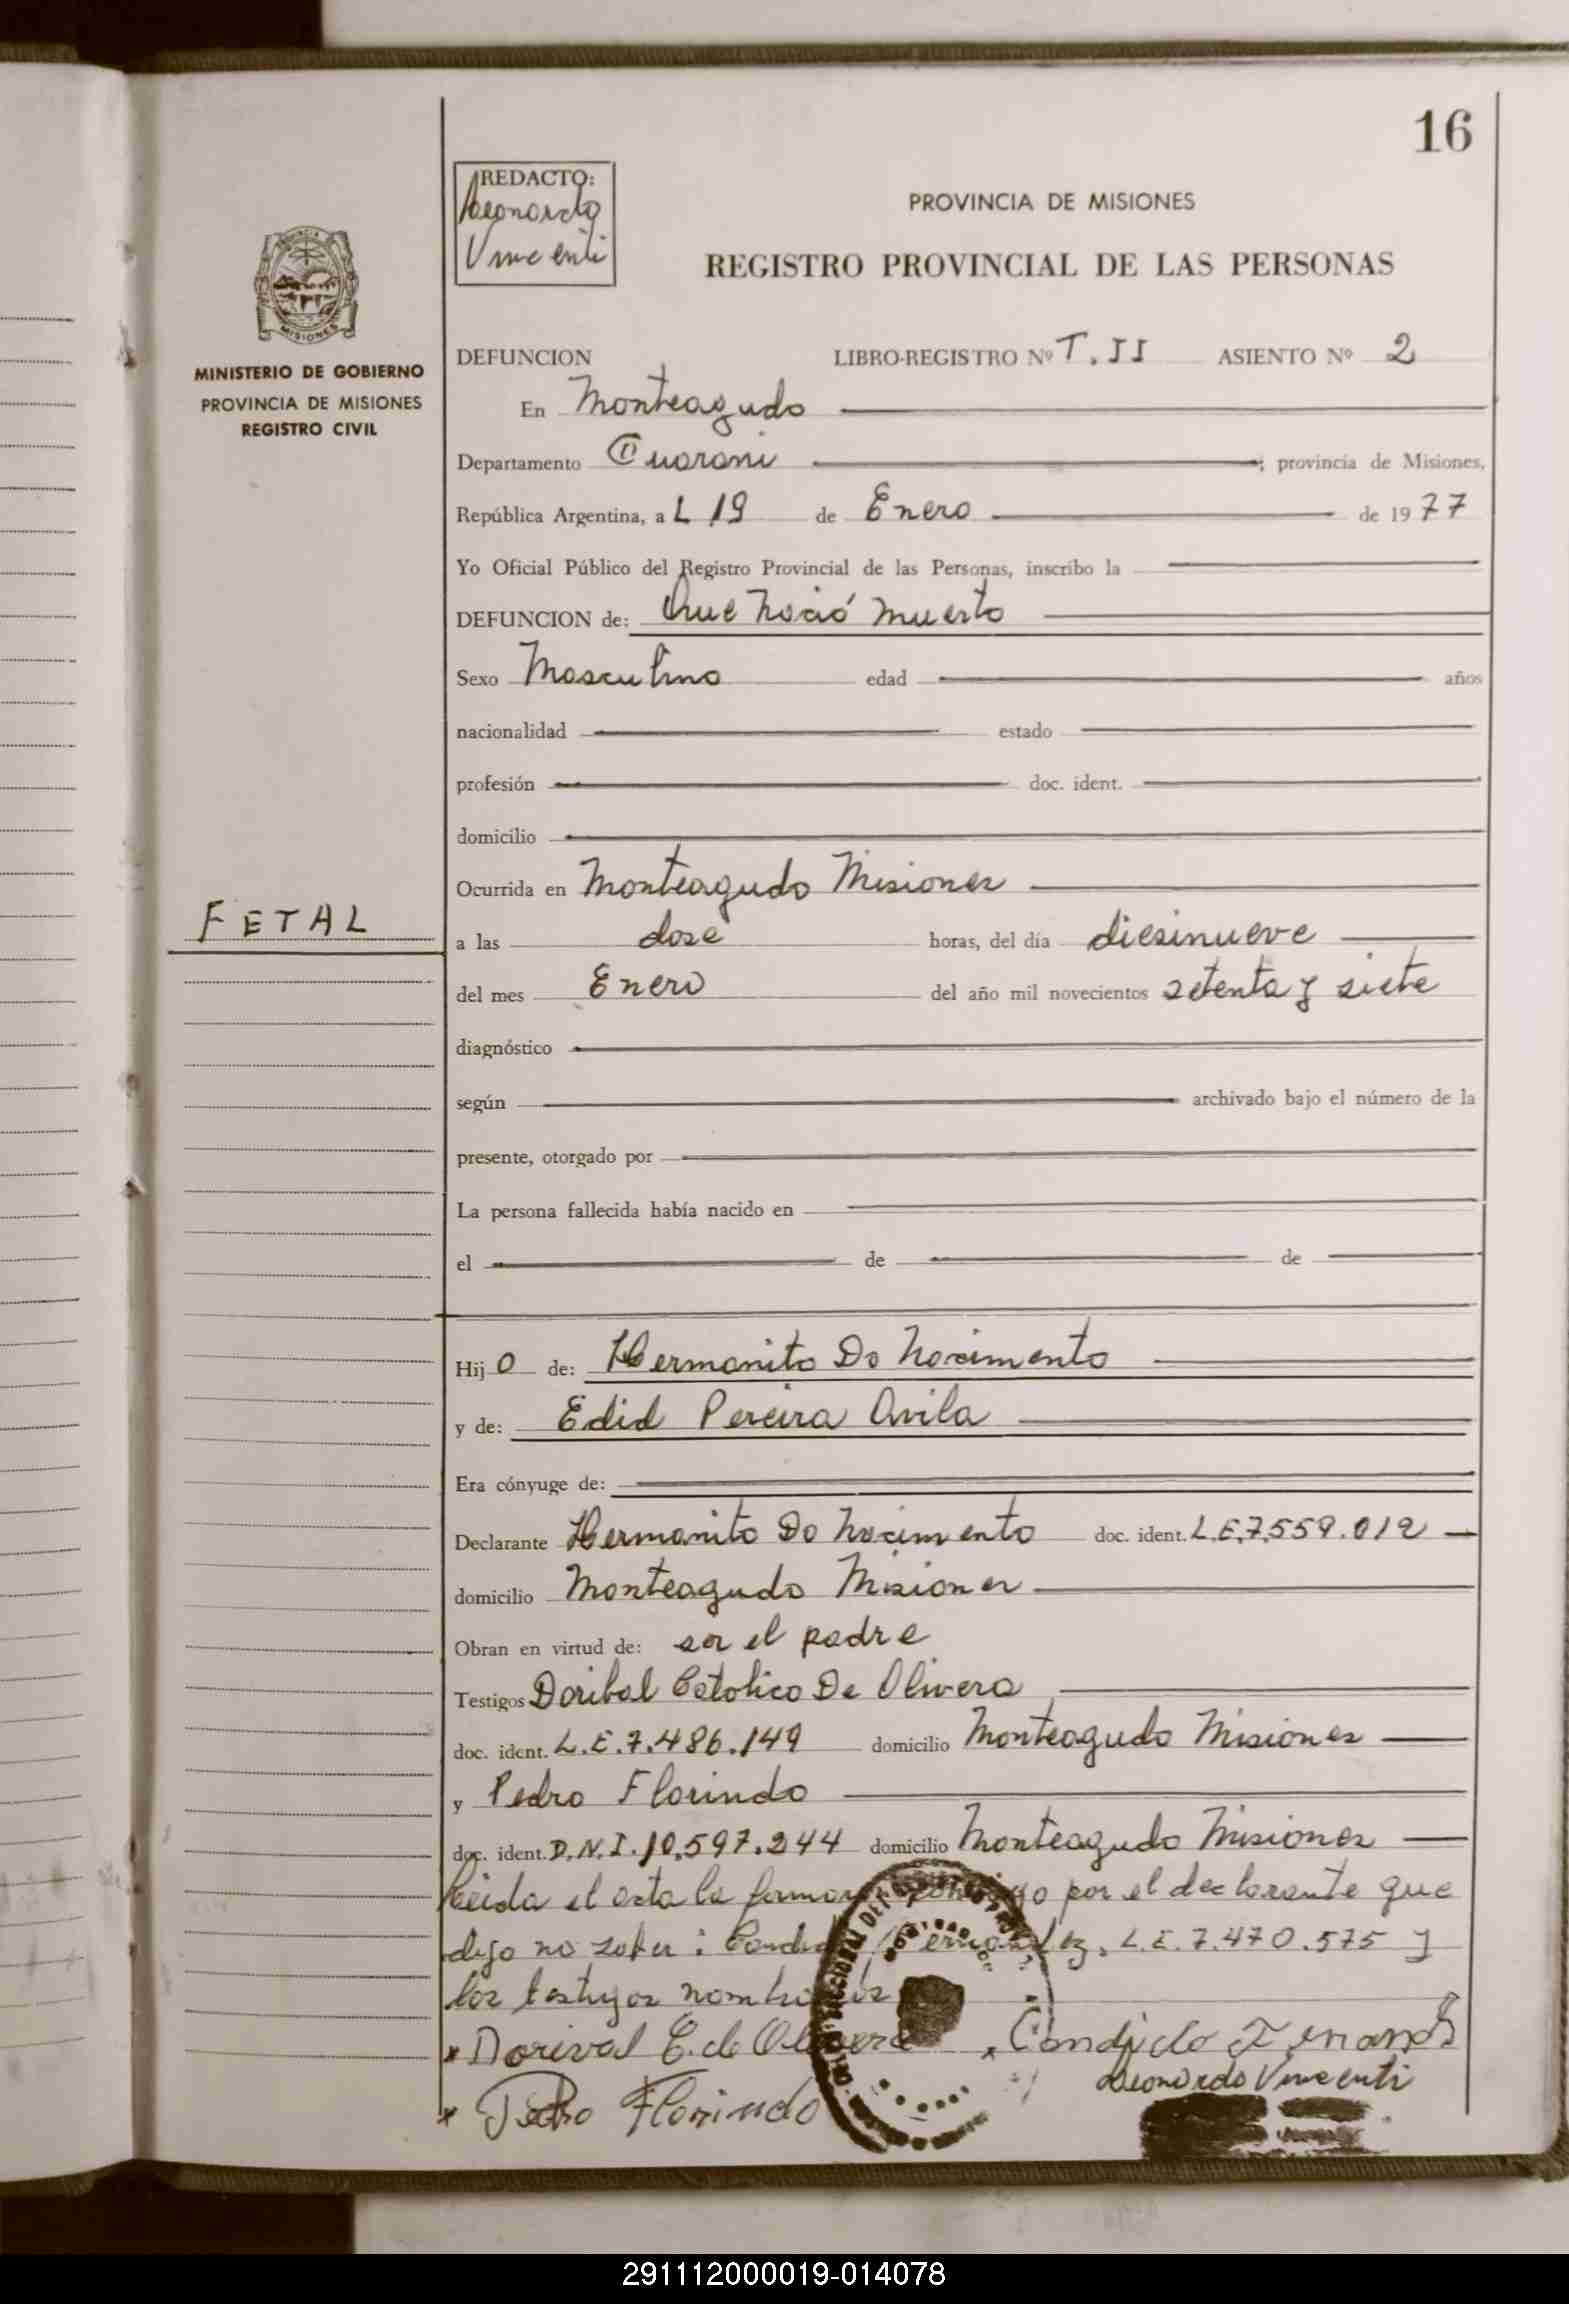 16
REDACTO:
Leonardo
Vincenti
PROVINCIA DE MISIONES
REGISTRO PROVINCIAL DE LAS PERSONAS
MISIONES
MINISTERIO DE GOBIERNO
PROVINCIA DE MISIONES
REGISTRO CIVIL
DEFUNCION LIBRO-REGISTRO Nº T. II ASIENTO Nº 2
En Monteagudo
Departamento Guarani ; provincia de Misiones,
República Argentina, a L 19 de Enero de 1977
Yo Oficial Público del Registro Provincial de las Personas, inscribo la
DEFUNCION de: Que Nació Muerto
Sexo Masculino edad años
nacionalidad estado
profesión doc. ident.
domicilio
Ocurrida en Monteagudo Misiones
FETAL
a las dose horas, del día diesinueve
del mes Enero del año mil novecientos setenta y siete
diagnóstico
según archivado bajo el número de la
presente, otorgado por
La persona fallecida había nacido en
el de de
Hij o de: Hermanito Do Nacimento
y de: Edid Pereira Avila
Era cónyuge de:
Declarante Hermanito Do Nacimento doc. ident. L.E.7.559.012
domicilio Monteagudo Misiones
Obran en virtud de: ser el padre
Testigos Doribal Catolico De Olivera
doc. ident. L.E.7.486.149 domicilio Monteagudo Misiones
y Pedro Florindo
doc. ident. D.N.I.10.597.244 domicilio Monteagudo Misiones
Leida el acta la firman conmigo por el declarante que
dijo no saber: L.E.7.470.575 y
los testigos nombrados
* Dorival C. de Olivera * Candido
Leonardo Vincenti
* Pedro Florindo
291112000019-014078